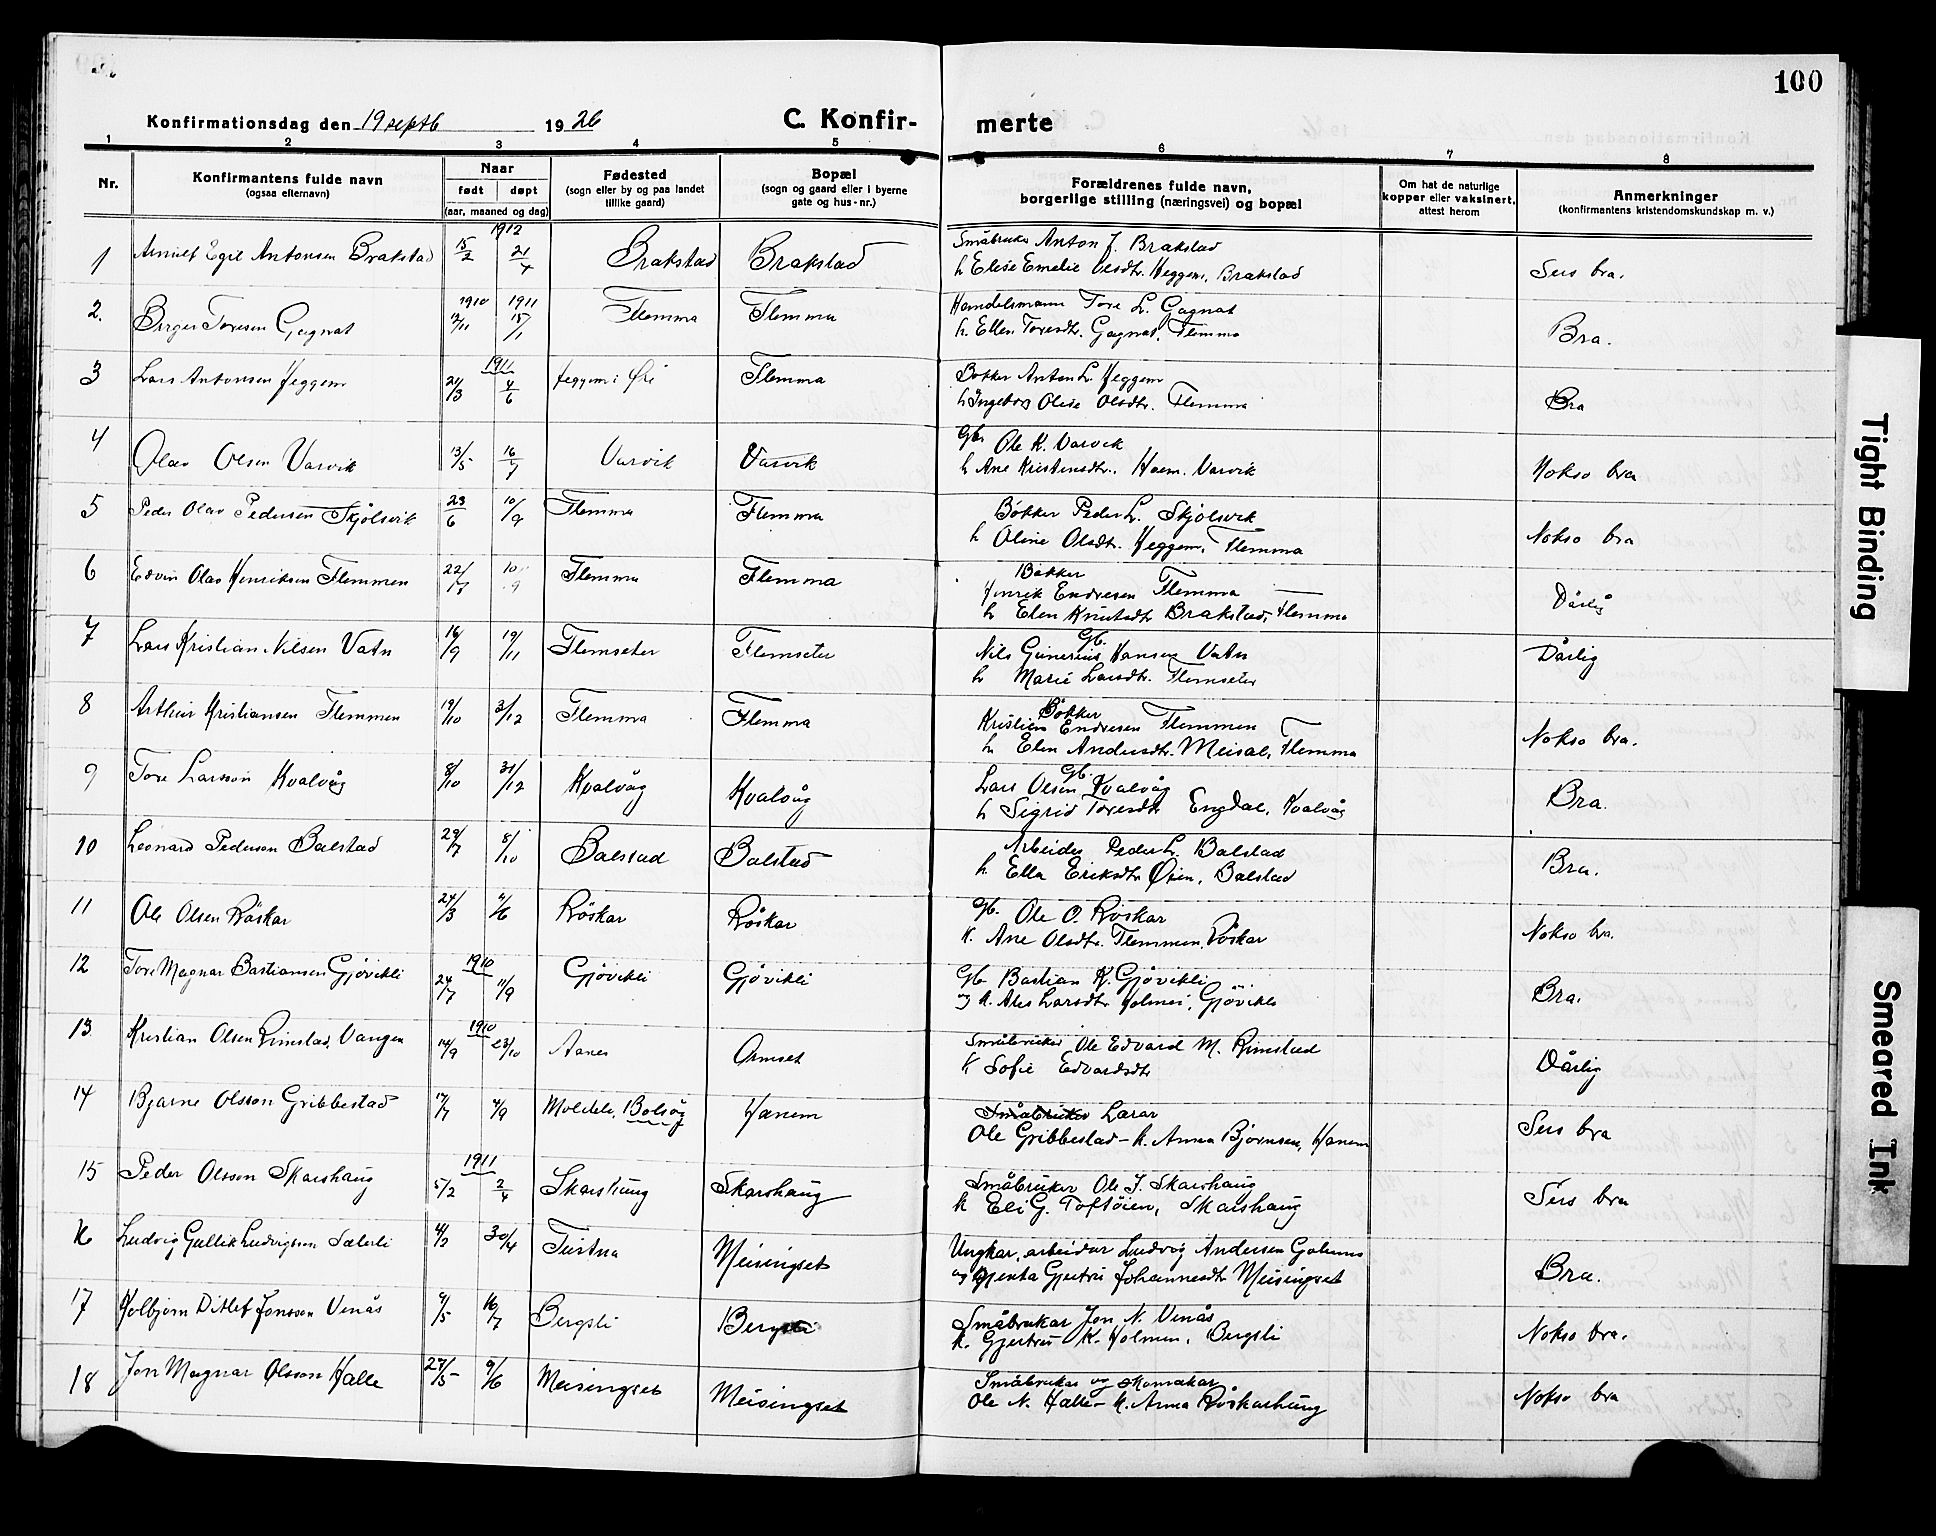 100
Konfirmationsdag den 19 septb 1926
C. Konfir- merte
1 2 3 4 5 6 7 8
Nr.
Konfirmantens fulde navn
(ogsaa efternavn)
Naar
født døpt
(aar, maaned og dag)
Fødested
(sogn eller by og paa landet
tillike gaard)
Bopæl
(sogn og gaard eller i byerne
gate og hus-nr.)
Forældrenes fulde navn,
borgerlige stilling (næringsvei) og bopæl
Om hat de naturlige
kopper eller vaksinert,
attest herom
Anmerkninger
(konfirmantens kristendomskundskap m. v.)
1912
1 Arnulf Egil Antonsen Brakstad 15/2 21/4 Brakstad Brakstad
Småbruker Anton J. Brakstad
h. Elise Emelie Olsdtr. Heggem, Brakstad
Sers bra.
1910 1911
2. Birger Toresen Gagnat 12/11 15/1 Flemma Flemma
Handelsmann Tore L. Gagnat
h. Ellen Toresdtr. Gagnat, Flemma
Bra.
1911
3 Lars Antonsen Heggem 21/3 4/6 Heggem i Øre Flemma
Bøkker Anton L. Heggem
h. Ingeborg Olise Olsdtr. Flemma
Bra
4 Olav Olsen Varvik 13/5 16/7 Varvik Varvik
Gb. Ole K. Varvik
h. Ane Kristensdtr. Hoem. Varvik
Nokso bra
5 Peder Olav Pedersen Skjølsvik 23/6 10/9 Flemma Flemma
Bøkker Peder L. Skjølsvik
h. Oline Olsdtr. Heggem, Flemma
Nokso bra
6 Edvin Olav Henriksen Flemmen 22/7 10/9 Flemma Flemma
Bøkker
Henrik Endresen Flemma
h. Elen Knutsdtr Brakstad, Flemma
Dårlig
7 Lars Kristian Nilsen Vatn 16/9 19/11 Flemseter Flemseter
Gb.
Nils Gunerius Hansen Vatn
h. Marie Larsdtr. Flemseter
Dårlig
8 Arthur Kristiansen Flemmen 19/10 3/12 Flemma Flemma
Bøkker
Kristian Endresen Flemmen
h. Elen Andersdtr. Meisal, Flemma
Nokso bra.
9 Tore Larsson Kvalvåg 8/10 31/12 Kvalvåg Kvalvåg
Gb.
Lars Olsen Kvalvåg
h. Sigrid Toresdtr Engdal, Kvalvåg
Bra.
10 Leonard Pedersen Balstad 29/7 8/10 Balstad Balstad
Arbeider Peder L. Balstad
h. Ella Eriksdtr Øien, Balstad
Bra.
11 Ole Olsen Röskar 24/3 4/6 Röskar Röskar
Gb. Ole O. Röskar
K. Ane Olsdtr. Flemmen, Röskar
Nokso bra.
1910
12 Tore Magnar Bastiansen Gjövikli 24/7 11/9 Gjövikli Gjövikli
Gb. Bastian K. Gjövikli
og K. Ales Larsdtr Holmei, Gjövikli
Bra.
1910
13 Kristian Olsen Rimstad, Vangen 14/9 23/10 Aanes Ormset
Småbruker Ole Edvard M. Rimstad
K Sofie Edvardsdtr
Dårlig
14 Bjarne Olsson Gribbestad 17/7 4/9 Moldeli, Bolsøy Hanem
Småbruker Lærar
Ole Gribbestad - k. Anna Bjørnsen, Hanem
Sers bra
1911
15 Peder Olsson Skarshaug 5/2 2/4 Skarshaug Skarshaug
Småbruker Ole J. Skarshaug
K Eli G. Toftöien, Skarshaug
Sers bra
16 Ludvig Gullik Ludvigsson Sæterli 4/2 30/4 Tustna Meisingset
Ungkar, arbeidar Ludvig Andersen
og gjenta Gjertru Johannesdtr Meisingset
Bra.
17 Kolbjørn Ditlef Jonsson Venås 4/5 16/7 Bergsli Bergsli
Småbrukar Jon N. Venås
K. Gjertru K. Holmen, Bergsli
Nokso bra.
18 Jon Magnar Olsson Halle 27/5 9/6 Meisingset Meisingset
Småbrukar og skomakar
Ole N. Halle - K. Anna Röskarhaug
Nokso bra
Tight Binding
Smeared Ink